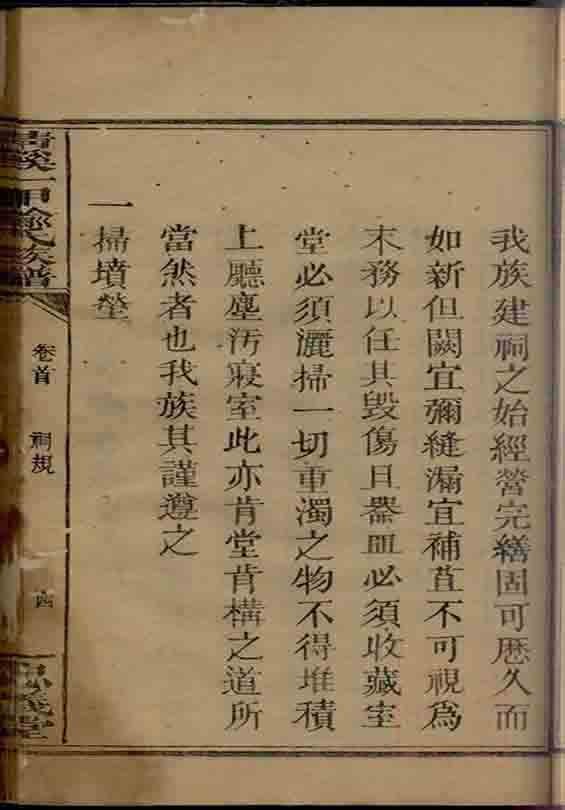 我族建祠之始經營完繕固可歷久而
如新但闕宜彌縫漏宜補苴不可視爲
末務以任其毀傷且器皿必須收藏室
堂必須灑掃一切重濁之物不得堆積
上廳塵汚寢室此亦肯堂肯構之道所
當然者也我族其謹遵之
一掃墳塋
一甲徐氏族譜
卷首
祠規
四
義堂